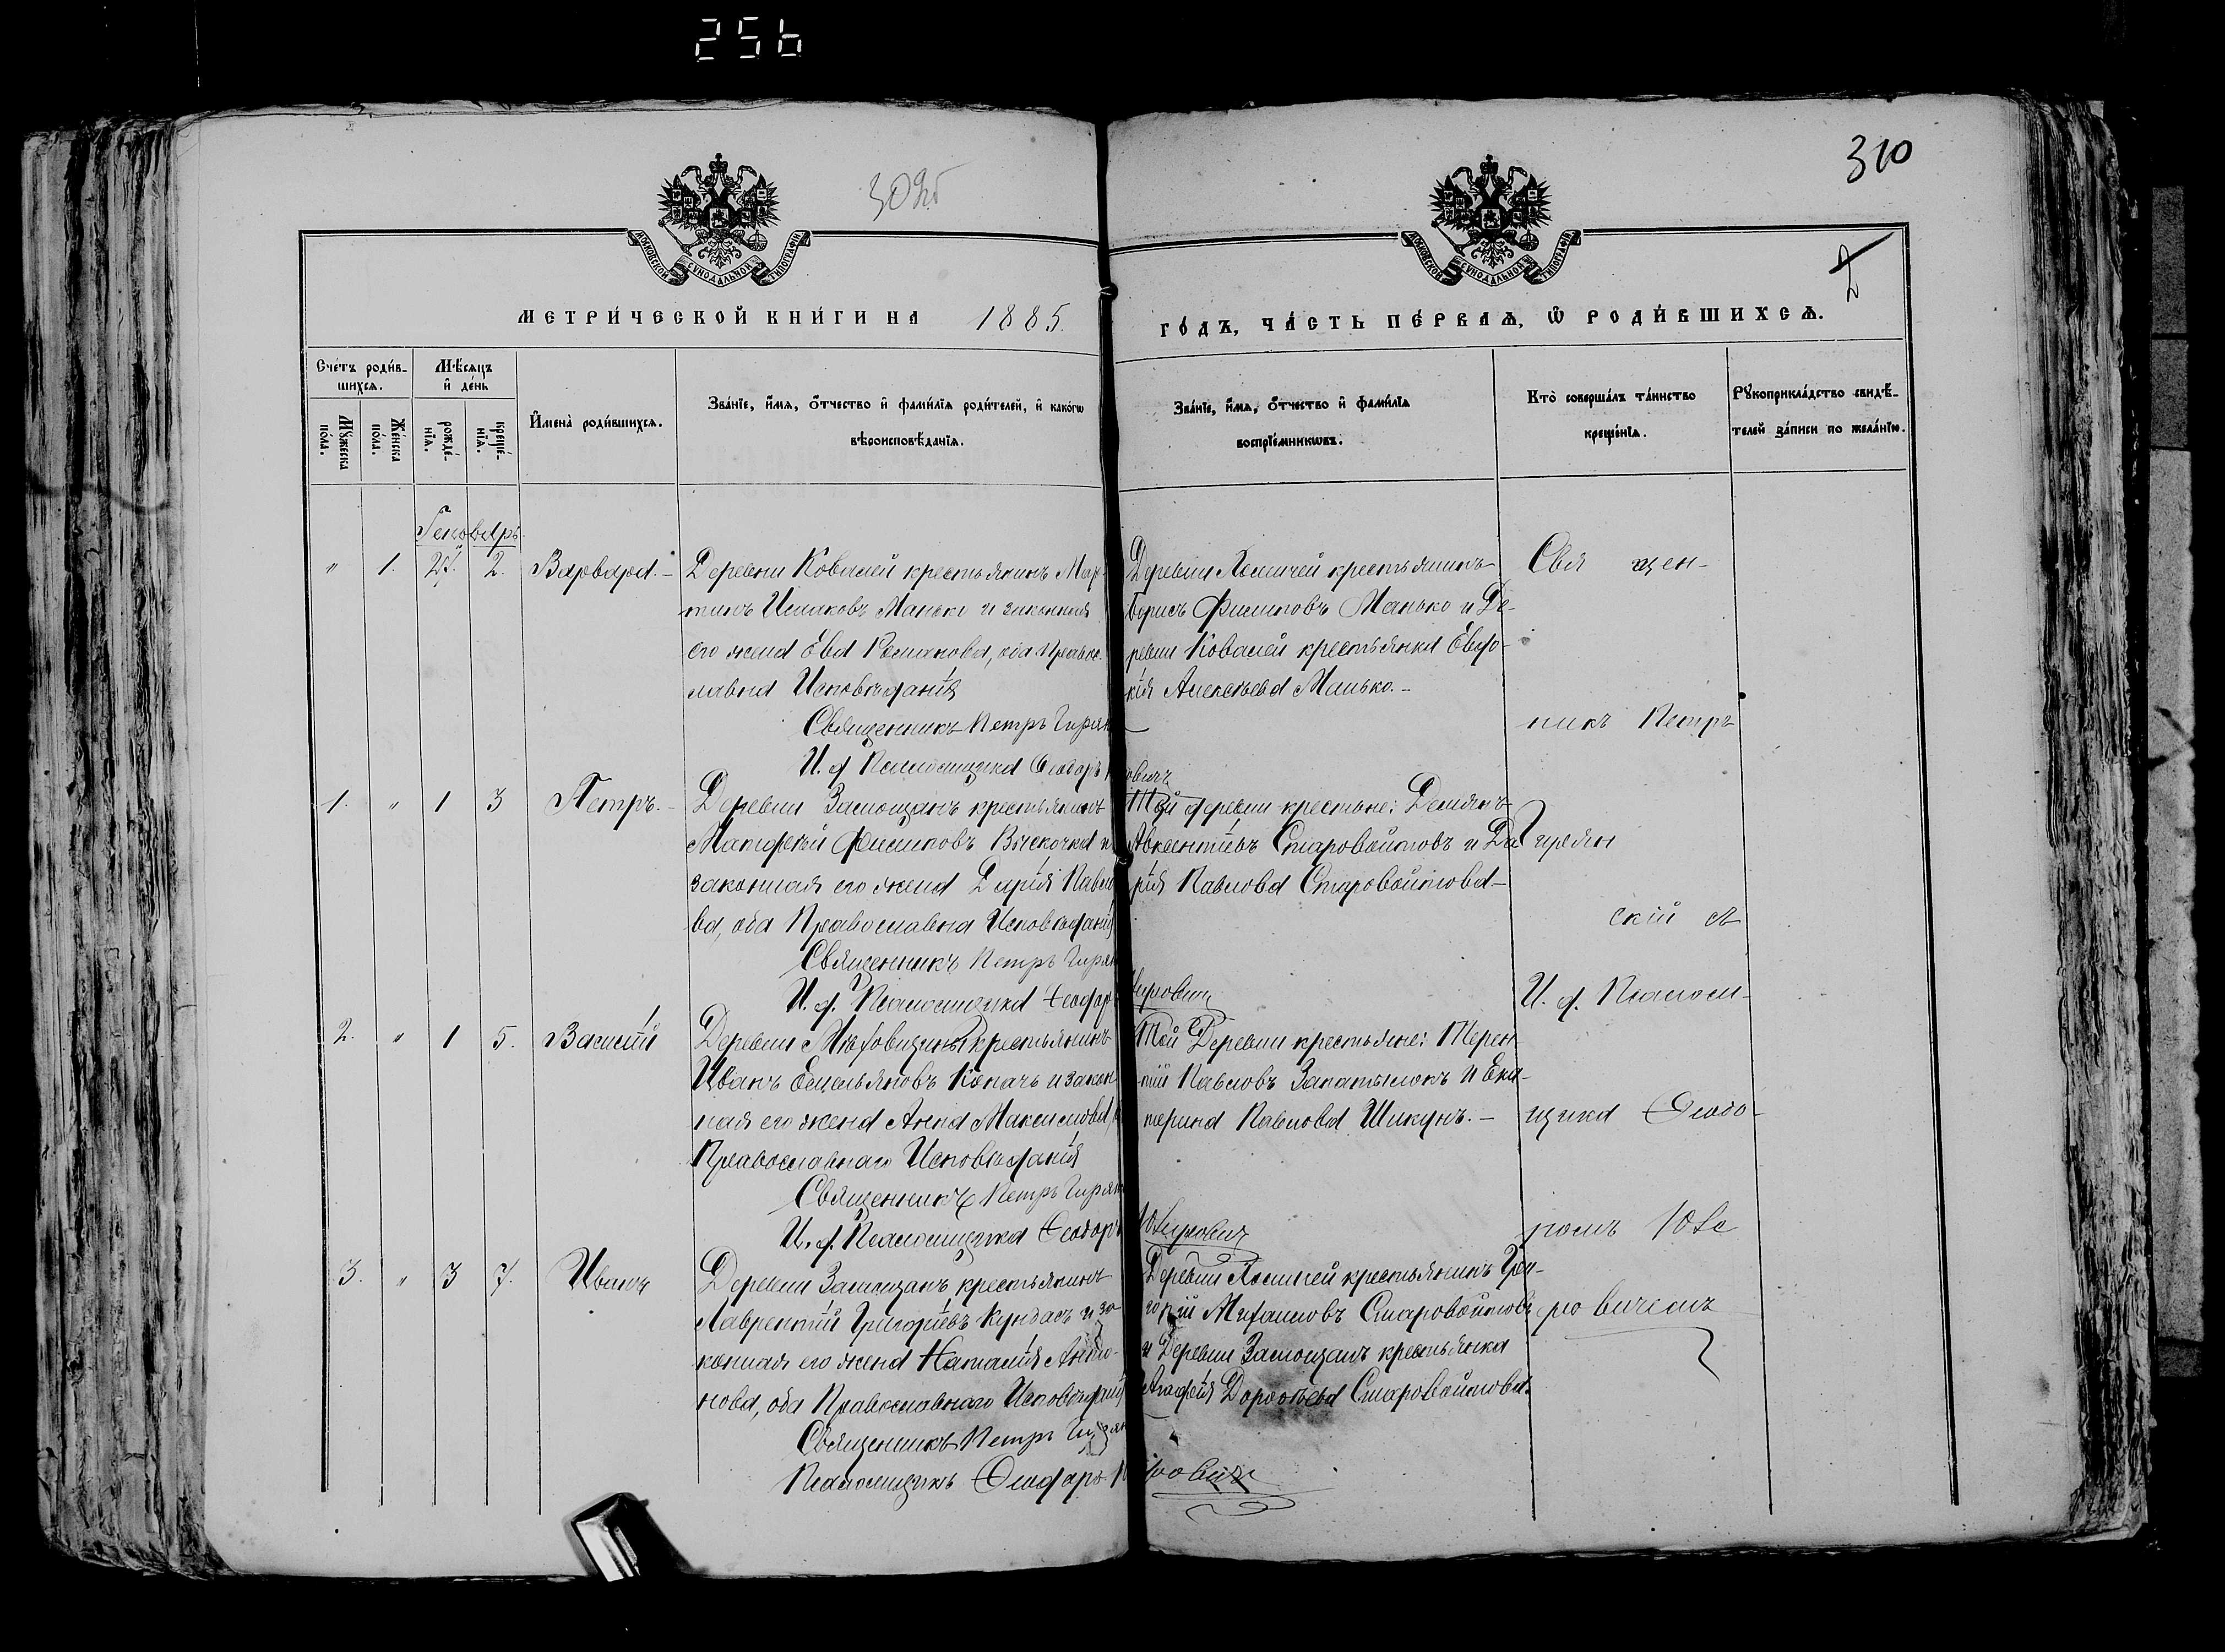 256
309об
310
2
МОСКОВСКОЙ СѴНОДАЛЬНОЙ ТИПОГРАФІИ
МОСКОВСКОЙ СѴНОДАЛЬНОЙ ТИПОГРАФІИ
МЕТРИ́ЧЕСКОЙ КНИ́ГИ НА 1885.
ГО́ДЪ, ЧА́СТЬ ПЕ́РВАѦ, Ѿ РОДИ́ВШИХСѦ.
Сче́тъ роди́в-
шихсѧ.
Мꙋ́жеска по́ла.
Же́нска по́ла.
Мѣ́сѧцъ
и҆ де́нь
рожде́-
нїѧ.
креще́-
нїѧ.
И҆мена̀ роди́вшихсѧ.
Зва́нїе, и҆́мѧ, ѻ҆́тчество и҆ фами́лїѧ роди́телей, и҆ како́гѡ
вѣроисповѣ́данїѧ.
Зва́нїе, и҆́мѧ, ѻ҆́тчество и҆ фами́лїѧ
воспрїе́мникѡвъ.
Кто̀ соверша́лъ та́инство
креще́нїѧ.
Рꙋкоприкла́дство свидѣ́-
телей за́писи по жела́нїю.
Генварь
" 1. 27. 2. Варвара.—
Деревни Ковалей крестьянинъ Мар-
тинъ Исааковъ Манько и законная
его жена Ева Романова, оба Правос-
лавна Исповѣданія
Священникъ Петръ
И. д. Псаломщика Ѳеодоръ
Деревни Ломачей крестьянинъ
Борисъ Филиповъ Манько и Де-
ревни Ковалей крестьянка Евдо-
кія Алексѣева Манько.—
1. " 1 3 Петръ.—
Деревни Замощанъ крестьянинъ
Матѳей Филиповъ Выскочка и
законная его жена Дарія Павло
ва, оба Православна Исповѣданія
Священникъ Петръ
И. д. Псаломщика Ѳеодоръ
Той деревни крестьяне: Демянъ
Авксентіевъ Старовойтовъ и Да
рія Павлова Старовойтова—
2. " 1 5. Василій
Деревни крестьянинъ
Иванъ Емельяновъ Копачъ и закон
ная его жена Анна Максимова,
Православнаго Исповѣданія
Священникъ Петръ
И. д. Псаломщика Ѳеодоръ
Той Деревни крестьяне: Терен
тій Павловъ Запатылокъ и Ека-
терина Павлова Шикунъ.—
3. " 3 7. Иванъ
Деревни Замощанъ крестьянинъ
Лаврентій Григоріевъ Кундасъ и за
конная его жена Наталія Анто-
нова, оба Православнаго Исповѣданія
Священникъ Петръ
Псаломщикъ Ѳеодоръ
Деревни крестьянинъ Гри-
горій Михаиловъ Старовойтовъ
и Деревни Замощанъ крестьянка
Агафія Дороѳеева Старовойтова.
Свя щен-
никъ Петръ
скій съ
И. д. Псалом-
щика Ѳеодо-
ромъ
ровичемъ